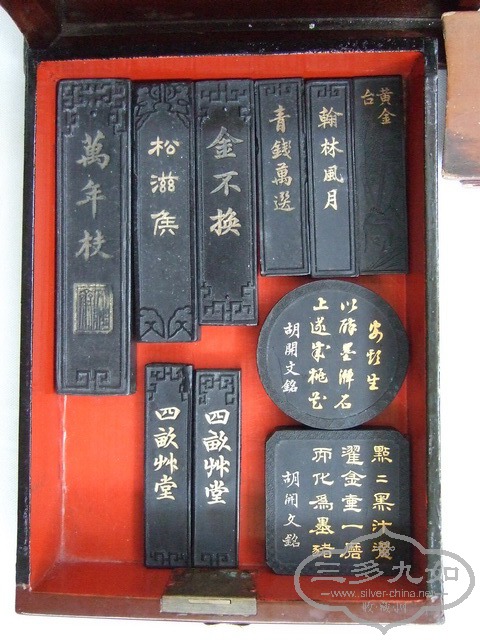 萬年枝
松滋侯
金不換
青錢萬選
翰林風月
黃金
台
安期生
以醉墨灑石
上遂成桃花
胡開文銘
四畝艸堂
四畝艸堂
點二黑汁
濯金壺一磨
而化為墨豬
胡開文銘
三多九如
www.silver-china.net